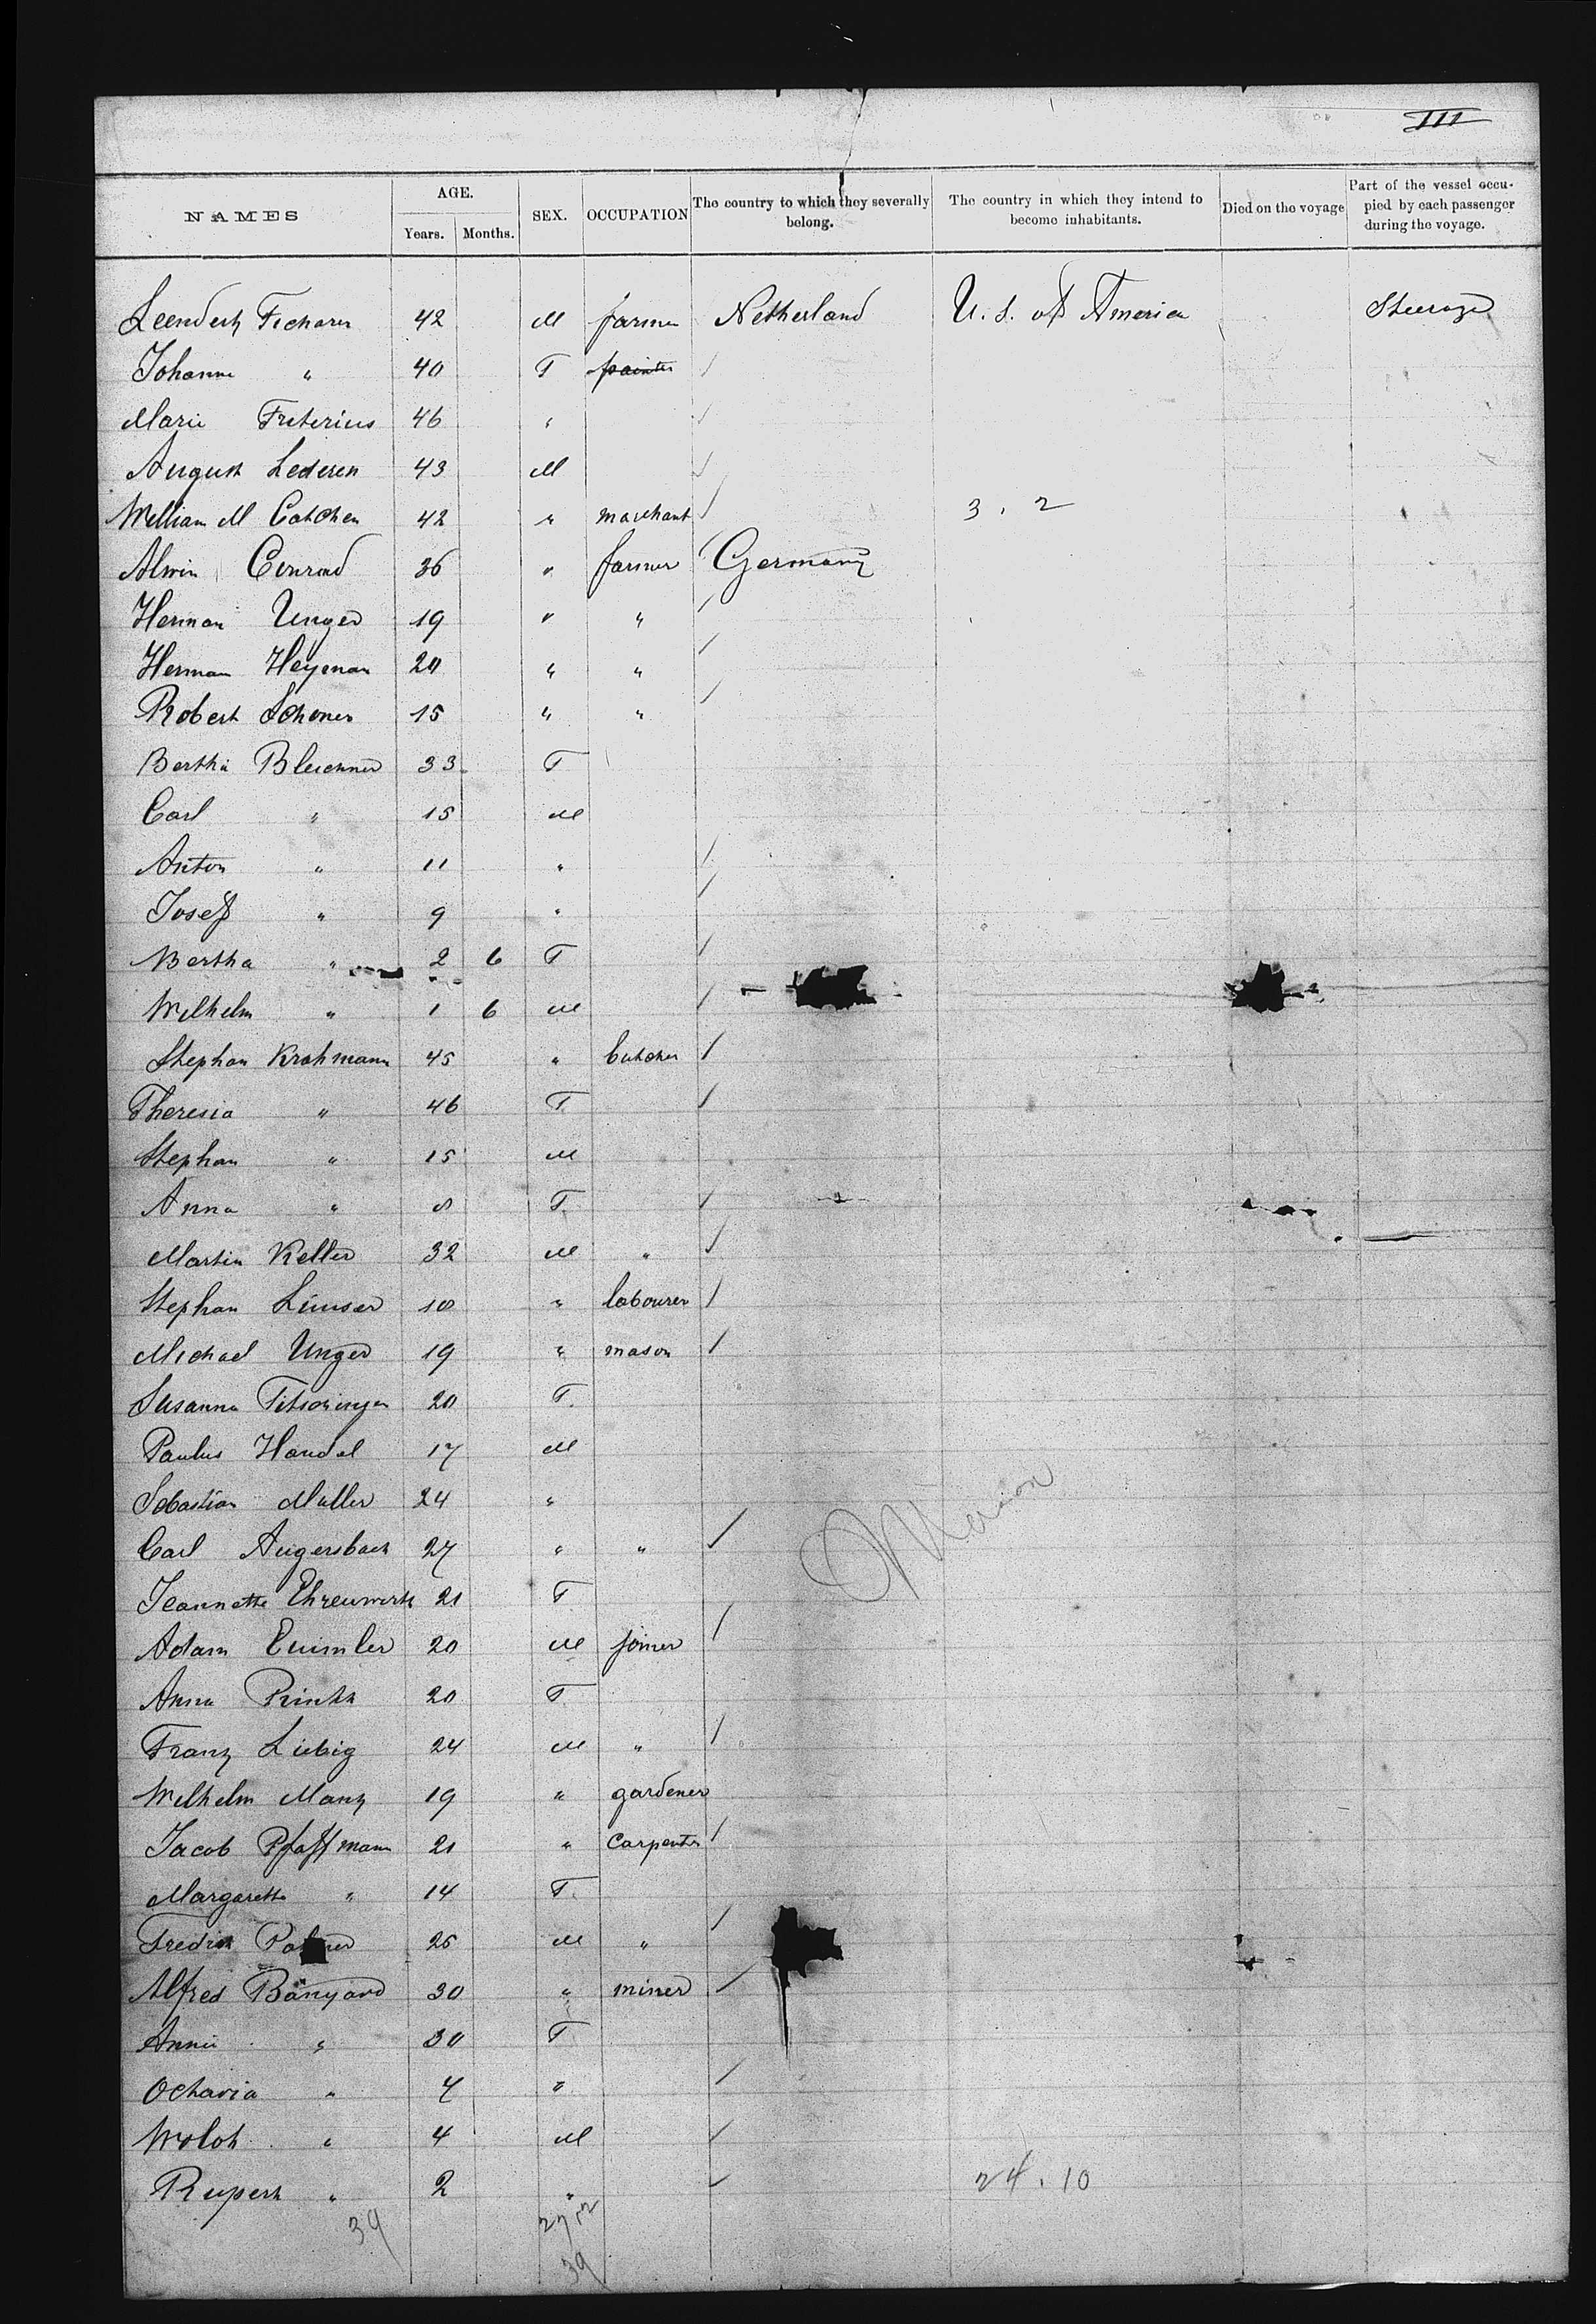 III
NAMES AGE. Years. Months. SEX. OCCUPATION The country to which they severally belong. The country in which they intend to become inhabitants. Died on the voyage Part of the vessel occupied by each passenger during the voyage.
Leendert 42 M farmer Netherland U.S. of America Steerage
Johanna " 40 F painter /
Marie Freterius 46 " /
August Lederen 43 M /
William M Catchen 42 " marchant / 3 . 2
Alwin Conrad 36 " farmer Germany
Herman Unger 19 " " /
Herman Heyman 20 " " /
Robert Schoner 15 " " /
Bertha Bleichner 33 F
Carl " 15 M
Anton " 11 " /
Josef " 9 " /
Bertha " 2 6 F /
Wilhelm " 1 6 M /
Stephan Krohmann 45 " butcher /
Theresia " 46 F /
Stephan " 15 M
Anna " 8 F /
Martin Keller 32 M " /
Stephan 18 " labourer /
Michael Unger 19 " mason /
Susanna 20 F.
Paulus Handel 17 M
Sebastian Muller 24 "
Carl Augersbach 27 " " /
Jeannette Ehrenwerth 21 F
Adam 20 M joiner /
Anna Printz 20 F
Franz Liebig 24 M " /
Wilhelm Manz 19 " gardener
Jacob Pfaffmann 21 " Carpenter /
Margaretta " 14 F.
Fredrik 25 M " /
Alfred Banyard 30 " miner /
Annie " 30 F
Octavia " 7 " /
" 4 M /
Rupert " 2 " / 24 . 10
39 27 12
39